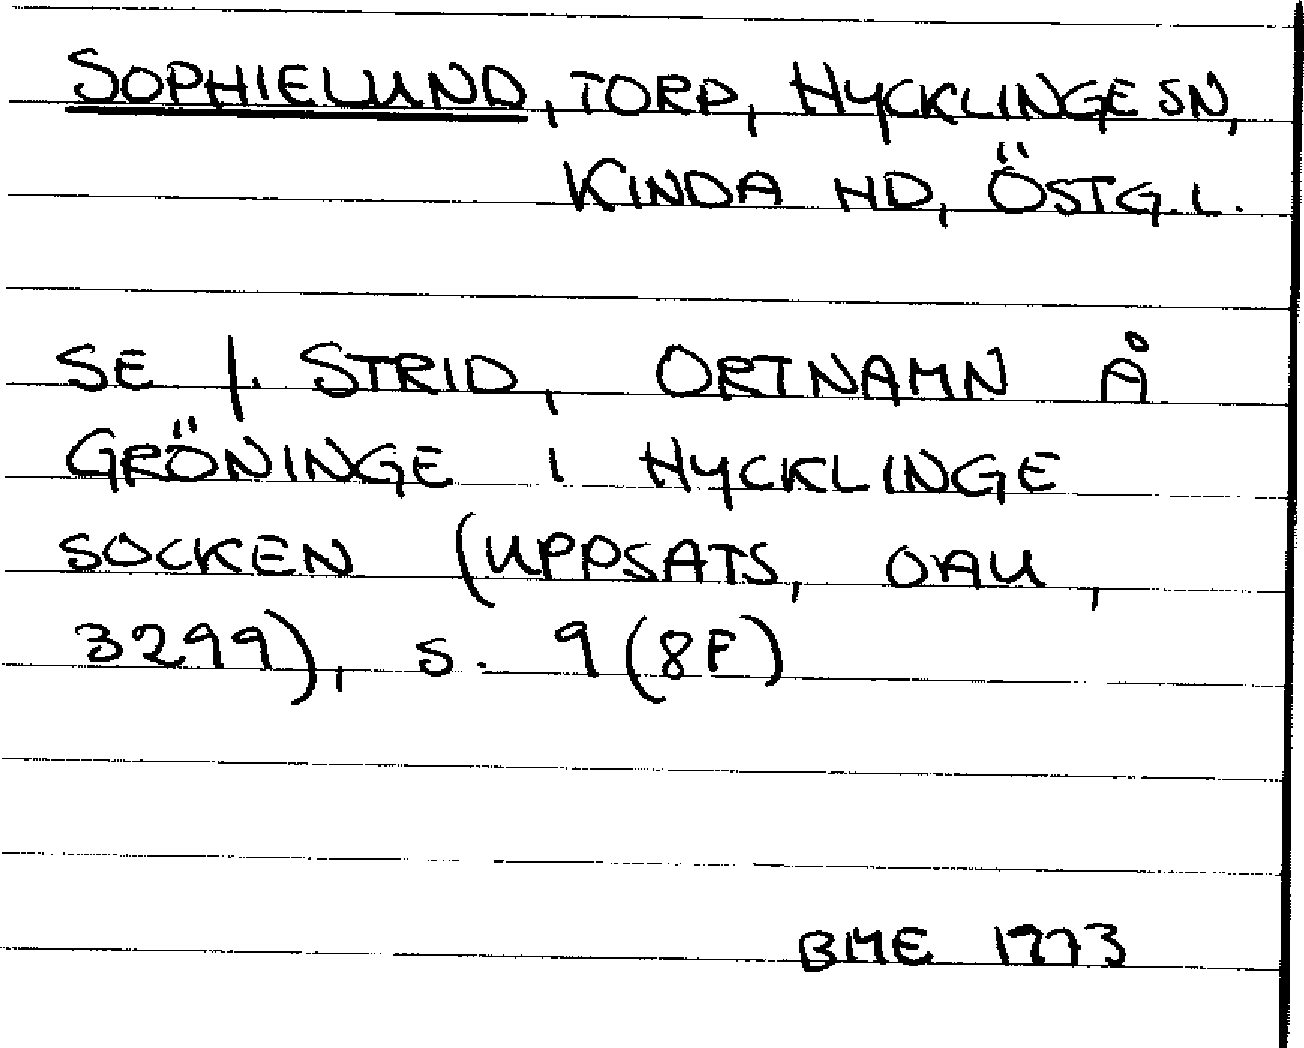 SOPHIELUND, TORP, HYCKLINGE SN,
KINDA HD, ÖSTG.L.
SE I. STRID, ORTNAMN Å
GRÖNINGE I HYCKLINGE
SOCKEN (UPPSATS, OAU,
3299), S. 9 (8F)
BME 1973